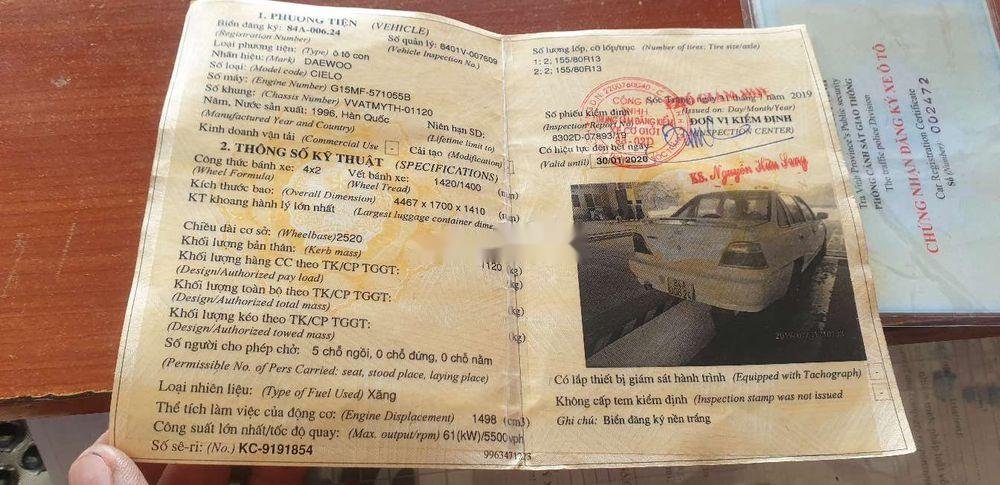 1. PHƯƠNG TIỆN (VEHICLE)
Biển đăng ký: 84A-006.24
(Registration Number)
Số quản lý: 8401V-007609
(Vehicle Inspection No.)
Loại phương tiện: (Type) ô tô con
Nhãn hiệu: (Mark) DAEWOO
Số loại: (Model code) CIELO
Số máy: (Engine Number) G15MF-571055B
Số khung: (Chassis Number) VVATMYTH-01120
Năm, Nước sản xuất: 1996, Hàn Quốc
(Manufactured Year and Country)
Niên hạn SD:
(Lifetime limit to)
Kinh doanh vận tải
(Commercial Use)
Cải tạo (Modification)
2. THÔNG SỐ KỸ THUẬT (SPECIFICATIONS)
Công thức bánh xe: 4x2
(Wheel Formula)
Vết bánh xe: 1420/1400
(Wheel Tread)
Kích thước bao: (Overall Dimension) 4467 x 1700 x 1410
KT khoang hành lý lớn nhất
(Largest luggage container dime
Chiều dài cơ sở: (Wheelbase)2520
Khối lượng bản thân: (Kerb mass)
Khối lượng hàng CC theo TK/CP TGGT:
(Design/Authorized pay load)
(kg)
Khối lượng toàn bộ theo TK/CP TGGT:
(Design/Authorized total mass)
(kg)
Khối lượng kéo theo TK/CP TGGT:
(Design/Authorized towed mass)
(kg)
Số người cho phép chở: 5 chỗ ngồi, 0 chỗ đứng, 0 chỗ nằm
(Permissible No. of Pers Carried: seat, stood place, laying place)
Loại nhiên liệu: (Type of Fuel Used) Xăng
Thể tích làm việc của động cơ: (Engine Displacement) 1498 (cm3)
Công suất lớn nhất/tốc độ quay: (Max. output/rpm) 61(kW)/5500vph
Số sê-ri: (No.) KC-9191854
Số lượng lốp, cỡ lốp/trục (Number of tires: Tire size/axle)
1: 2; 155/80R13
2: 2; 155/80R13
Sóc Trăng, ngày 31 tháng 7 năm 2019
(Issued on: Day/Month/Year)
Số phiếu kiểm định
(Inspection Report No)
8302D-07893/19
ĐƠN VỊ KIỂM ĐỊNH
(INSPECTION CENTER)
Có hiệu lực đến hết ngày
(Valid until) 30/01/2020
Có lắp thiết bị giám sát hành trình (Equipped with Tachograph)
Không cấp tem kiểm định (Inspection stamp was not issued
Ghi chú: Biển đăng ký nền trắng
Tra Vinh Province's Public security
PHÒNG CẢNH SÁT GIAO THÔNG
The traffic police Division
CHỨNG NHẬN ĐĂNG KÝ XE Ô TÔ
Car Registration Certificate
Số (Number) 002472